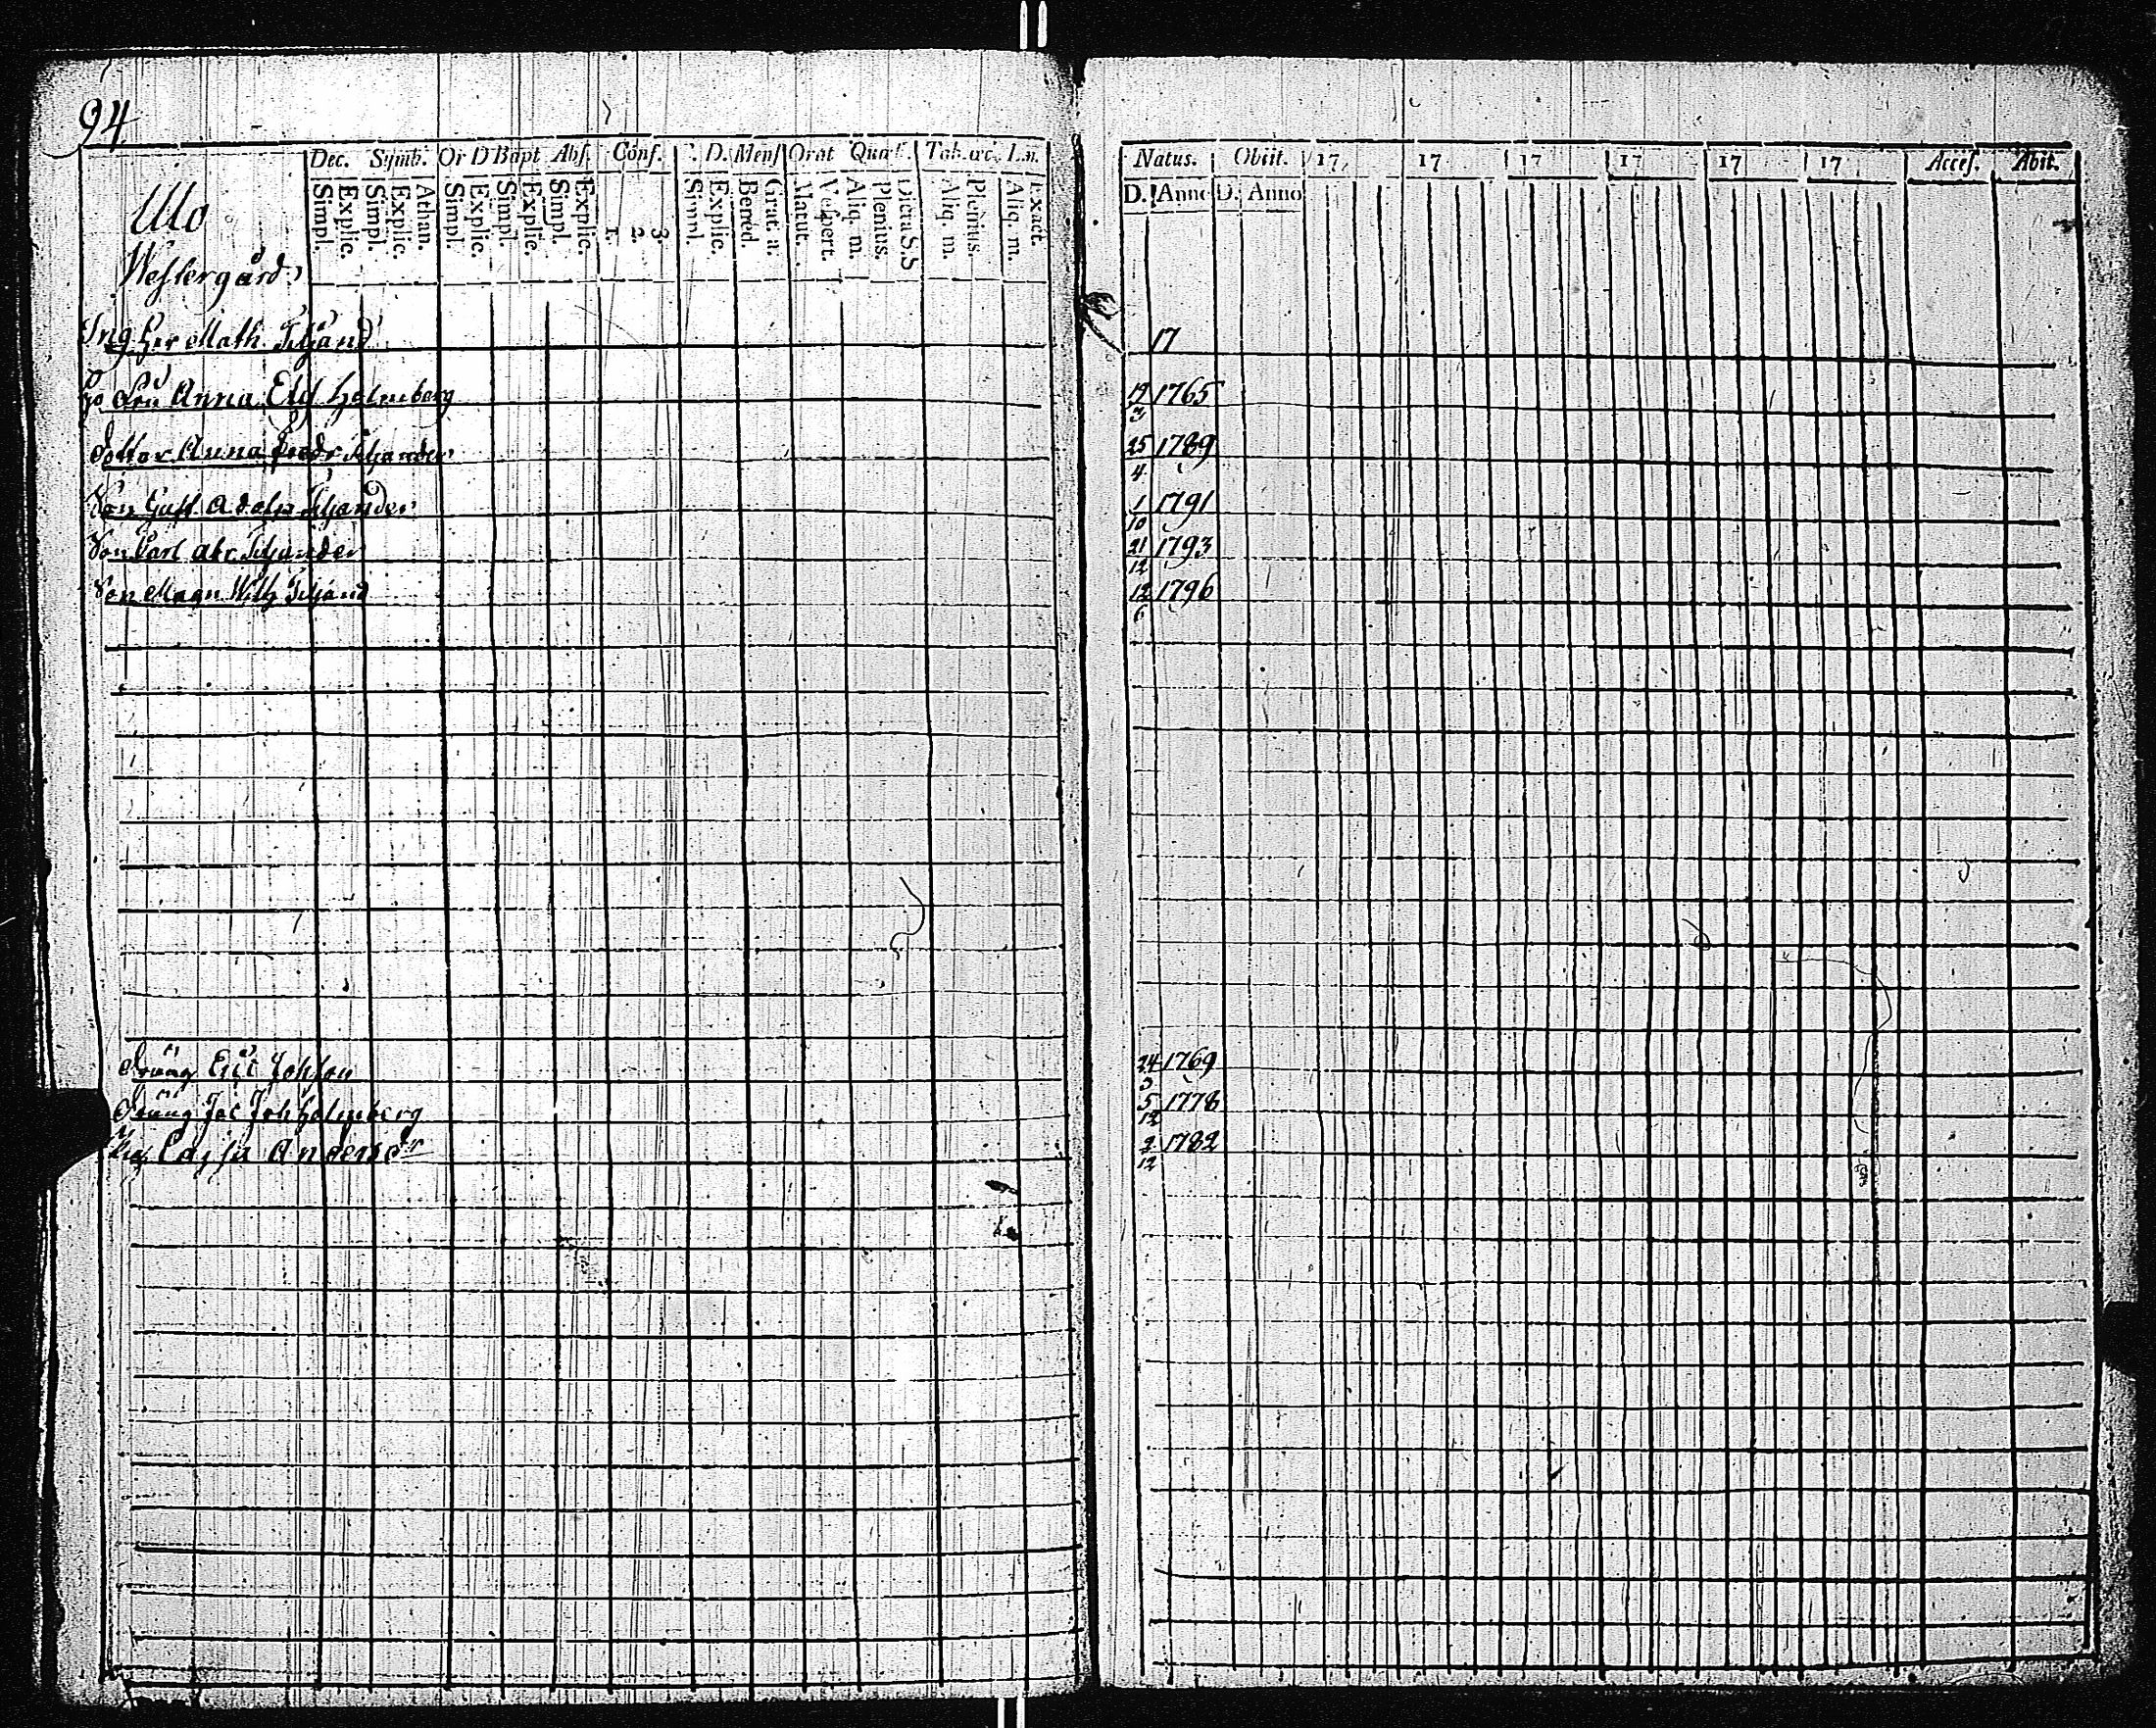 94
Dec. Symb. Or D Bapt Abs. Conf. D. Mens Orat Quæst. Tab. œc. L.n.
Simpl. Explic. Simpl. Explic. Athan. Simpl. Explic. Simpl. Explic. Simpl. Explic. 1. 2. 3. Simpl. Explic. Bered. Grat. a. Matut. Vespert. Aliq. m. Plenius. Dicta S.S Aliq. m. Plenius. Aliq. m. Exact.
Natus. Obiit. 17 17 17 17 17 17 Access. Abit.
D. Anno D. Anno
Ulo
Westergård
Ing Her Math. 17
Fru Anna Holmberg 19/3 1765
dotter Anna 25/4 1789
Son Gust. Adolph 1/10 1791
Son Carl Abr. 21/12 1793
Son Magn Wilh 12/6 1796
dräng Eric Johsson 24/3 1769
dräng Jac Joh Holmberg 5/12 1778
Pig Cajsa Andersdr 2/12 1782